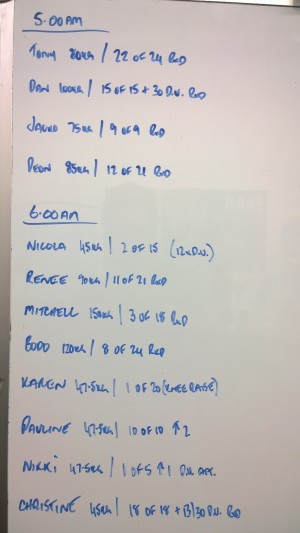 5.00AM
TONY 80KG / 22 OF 24 RxD
DAN 100KG / 15 OF 15 + 30 D.W. RxD
75KG / 9 OF 9 RxD
DEON 85KG / 12 OF 21 RxD
6.00AM
NICOLA 45KG / 2 OF 15 (12KG D.W.)
RENEE 90KG / 11 OF 21 RxD
MITCHELL 150KG / 3 OF 18 RxD
TODD 120KG / 8 OF 24 RxD
KAREN 47.5KG / 1 OF 20 (KNEE RAISE)
PAULINE 47.5KG / 10 OF 10 ↑ 2
NIKKI 47.5KG / 1 OF 5 ↑ 1 D.W. ATT.
CHRISTINE 45KG / 18 OF 18 + 13/30 D.W. RxD